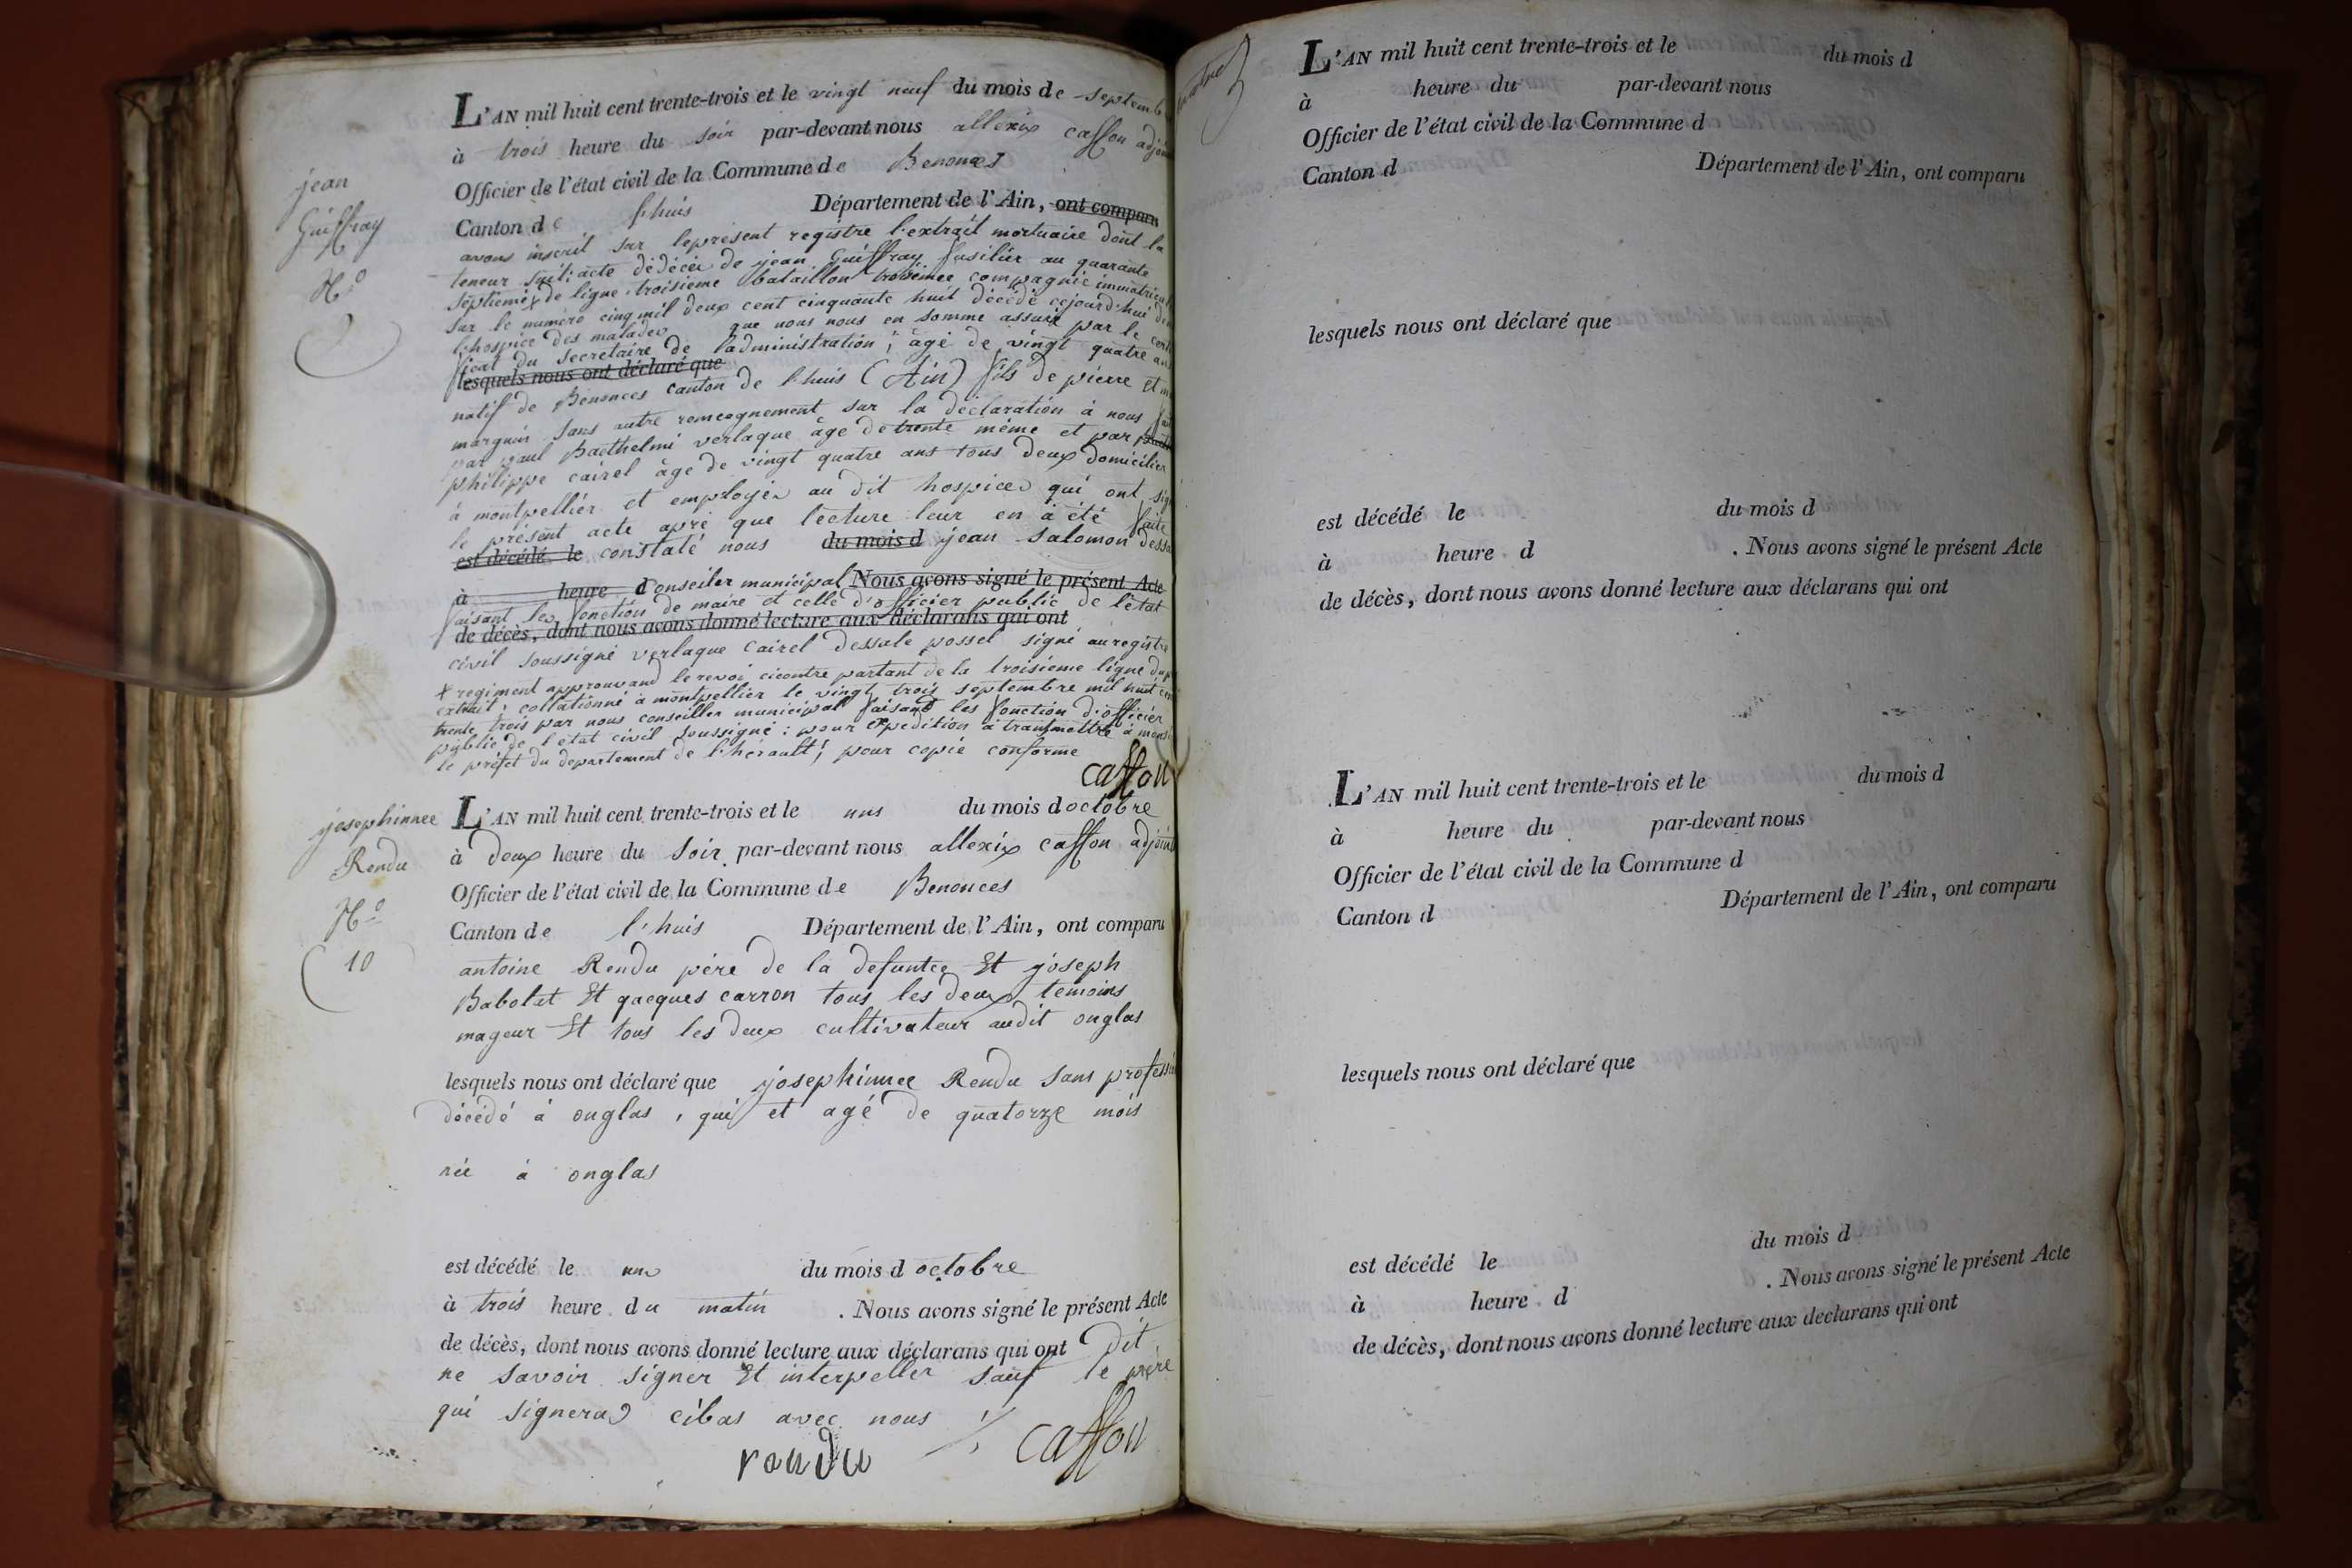 jean
Guiffray
N.o
9
L'AN mil huit cent trente-trois et le vingt neuf du mois de septemb
à trois heure du soir par-devant nous allexix casson adjoin
Officier de l'état civil de la Commune de Benonces
Canton de l'huis Département de l'Ain, ont comparu
avons inscrit sur leprésent registre l'extrait mortuaire dont la
teneur suit: acte dédécéx de jean Guiffray fusilier au quarante
septieme x de ligne troisieme bataillon troisiemee compagnie immatricul
sur le numéro cinq mil deux cent cinquante huit décédé cejourd'hui dan
l'hospice des malades que nous nous en somme assuré par le certi
ficat du secretaire de l'administration; âgé de vingt quatre ans
lesquels nous ont déclaré que
natif de Benonces canton de l'huis (Ain) fils de pierre et m
marguin sans autre remcegnement sur la déclaration à nous fai
par paul Barthelmi verlaque âge de trente même et par
philippe cairel âge de vingt quatre ans tous deux domicilier
à montpellier et employer au dit hospice qui ont sig
le présent acte apré que lecture leur en à été faite
est décédé le constaté nous du mois d jean salomon dessa
à heure d Conseiler municipal Nous avons signé le présent Acte
faisant les fonction de maire et celle d'officier public de l'état
de décès, dont nous avons donné lecture aux déclarans qui ont
civil soussigné verlaque cairel dessale possel signé au registre
x regiment approuvand le revoi cicontre partant de la troisieme ligne du
extrait, collationné à montpellier le vingt trois septembre mil huit cen
trente trois par nous conseiller municipal faisant les fonction d'officier
public de l'etat civil soussigné: pour expedition à transmettre à mons
le préfet du departement de l'hérault; pour copie conforme
casson
josephinnee
Rendu
N.o
10
L'AN mil huit cent trente-trois et le uns du mois doctobre
à deux heure du soir par-devant nous allexix casson adjoint
Officier de l'état civil de la Commune de Benonces
Canton de l'huis Département de l'Ain, ont comparu
antoine Rendu pére de la defuntee Et joseph
Babolat Et jacques carron tous les deux temoins
mageur Et tous les deux cultivateur audit onglas
lesquels nous ont déclaré que josephinnee Rendu sans professio
décédé à onglas, qui et agé de quatorze mois
née à onglas
est décédé le uns du mois d octobre
à trois heure du matin . Nous avons signé le présent Acte
de décès, dont nous avons donné lecture aux déclarans qui ont dit
ne savoir signer Et interpeller sauf le pére
qui signera cibas avec nous
randu casson
L'AN mil huit cent trente-trois et le du mois d
à heure du par-devant nous
Officier de l'état civil de la Commune d
Canton d Département de l'Ain, ont comparu
lesquels nous ont déclaré que
est décédé le du mois d
à heure d . Nous avons signé le présent Acte
de décès, dont nous avons donné lecture aux déclarans qui ont
L'AN mil huit cent trente-trois et le du mois d
à heure du par-devant nous
Officier de l'état civil de la Commune d
Canton d Département de l'Ain, ont comparu
lesquels nous ont déclaré que
est décédé le du mois d
à heure d . Nous avons signé le présent Acte
de décès, dont nous avons donné lecture aux déclarans qui ont